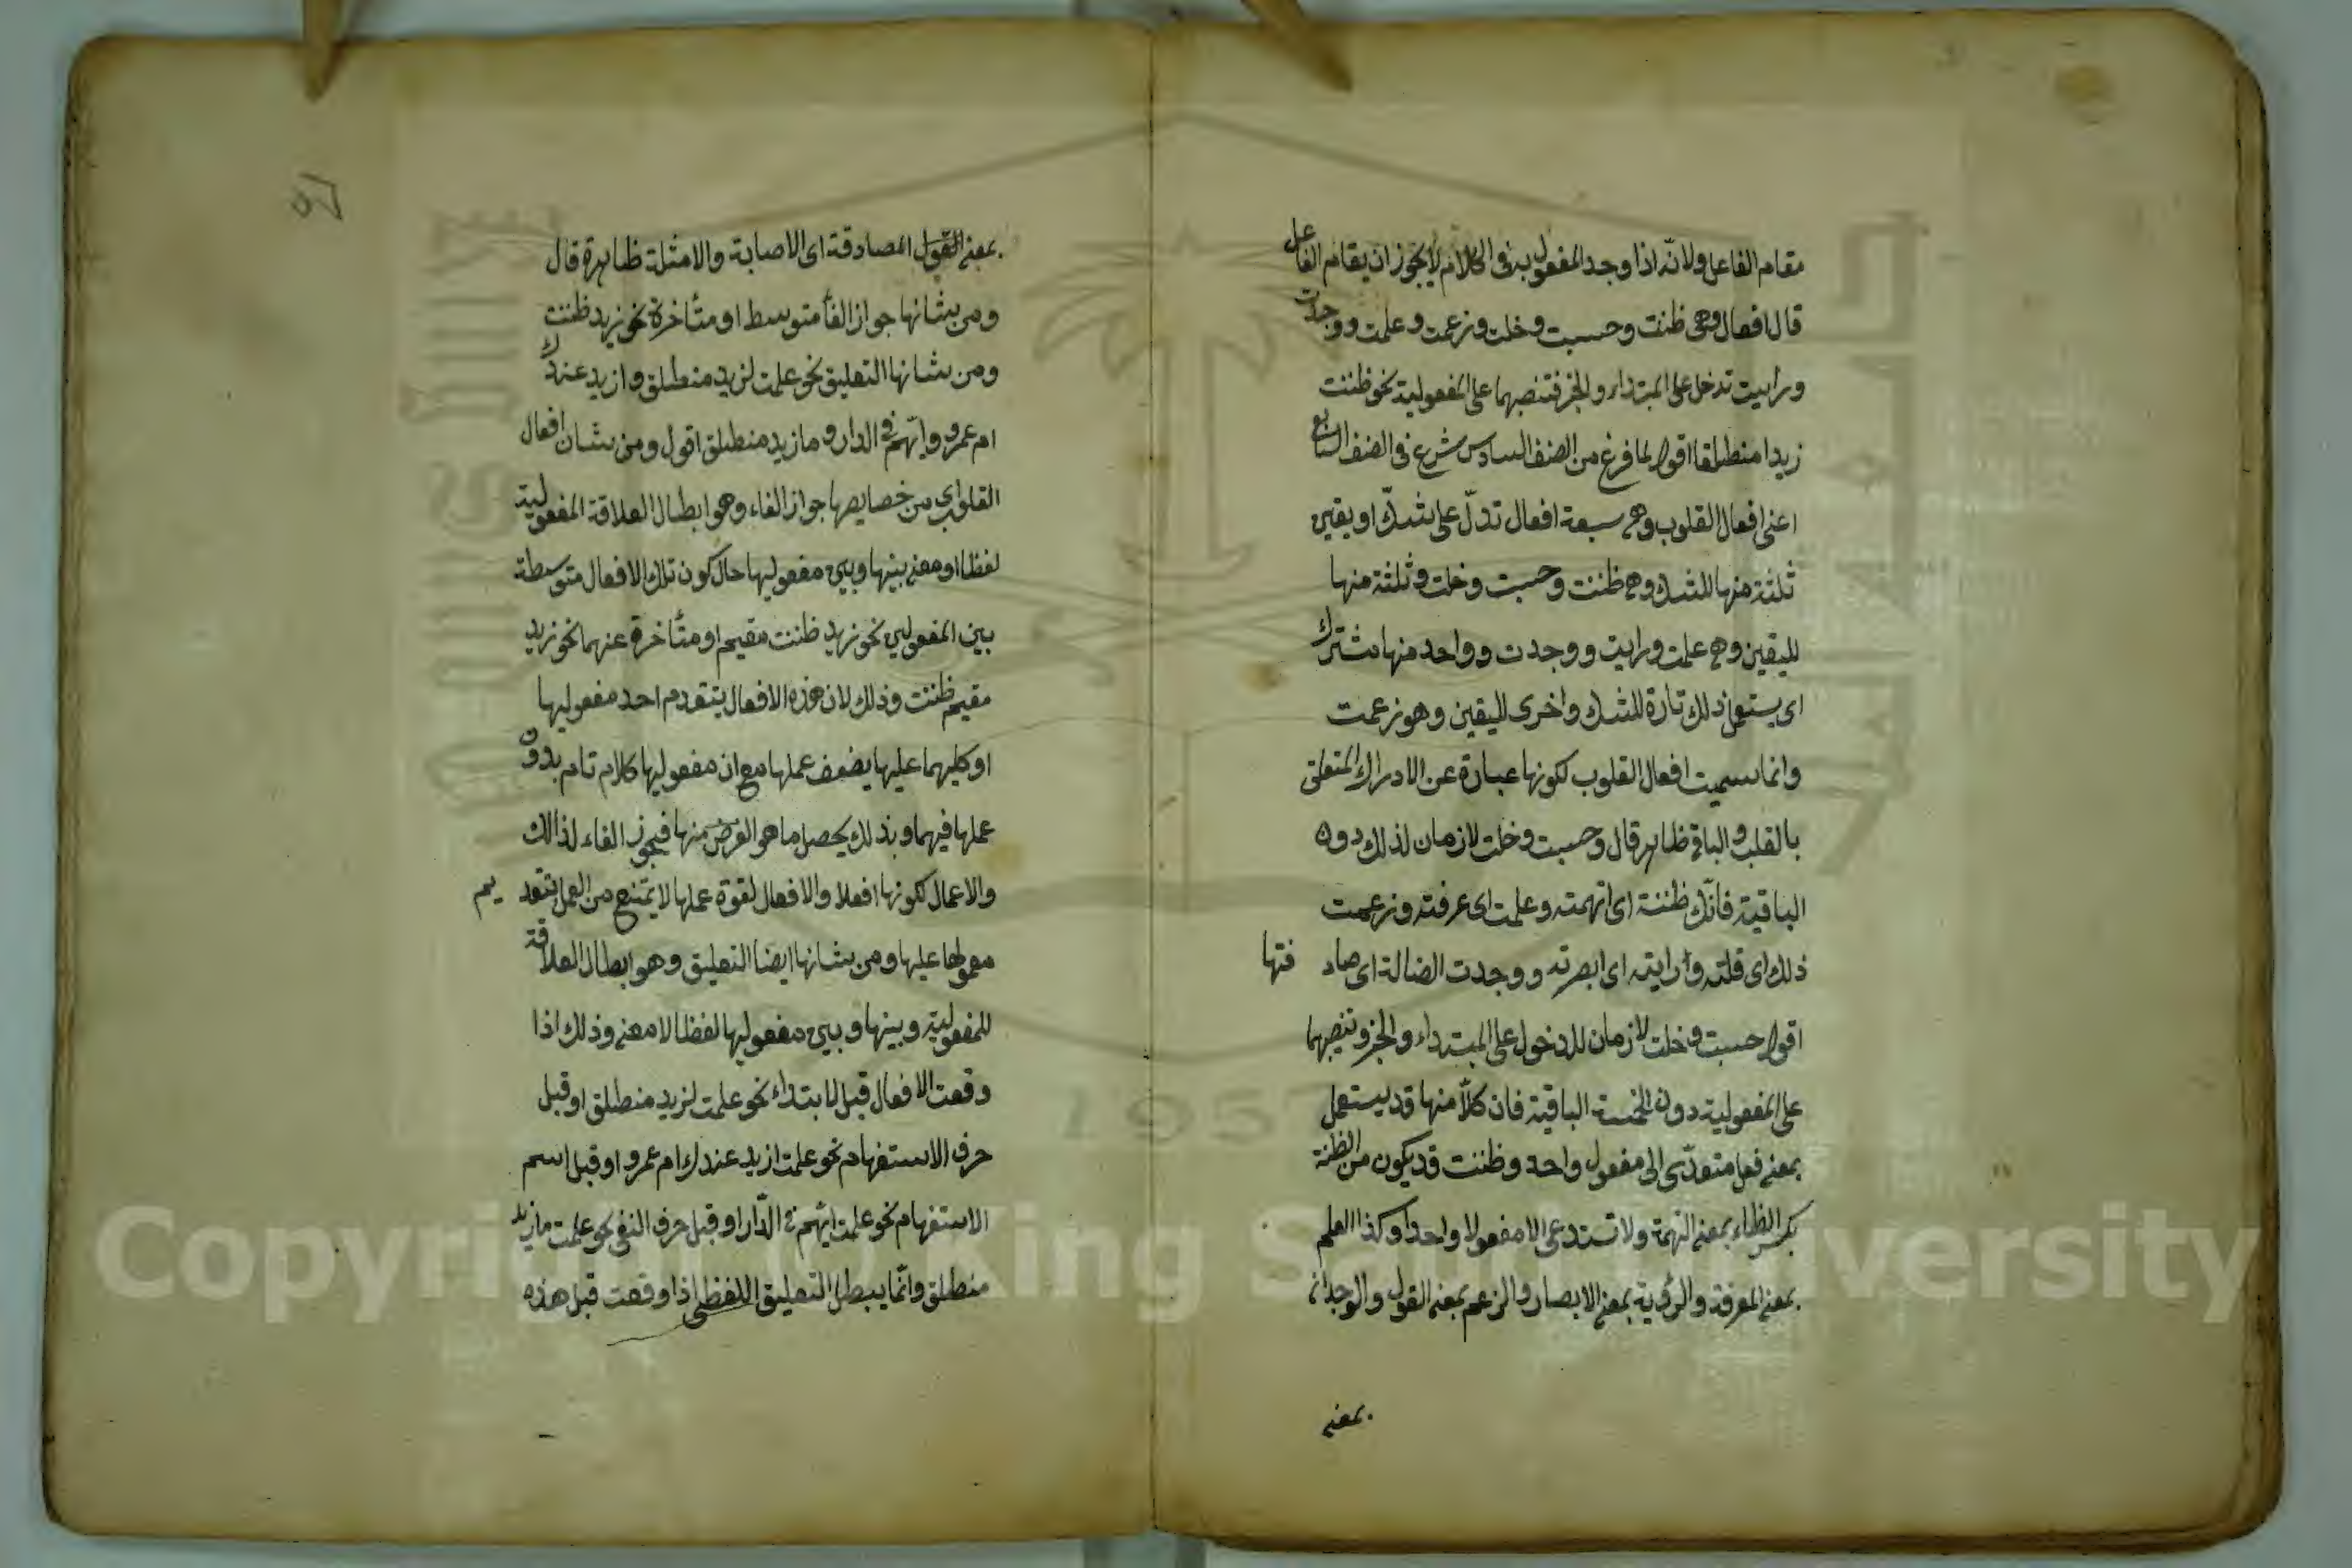 مقام الفاعل ولانه اذا وجد المفعول به فى الكلام لا يجوز ان يقام الفاعل
قال افعال وهى ظننت وحسبت وخلت وزعمت وعلمت ووجدت
ورايت تدخل على المبتداء والخبر فتنصبهما على المفعولية نحو ظننت
زيدا منطلقا اقول لما فرغ من الصنف السادس شرع فى الصنف السابع
اعنى افعال القلوب وهى سبعة افعال تدلّ على شك او يقين
ثلثة منها للشك وهى ظننت وحسبت وخلت وثلثة منها
لليقين وهى علمت ورايت ووجدت وواحد منها مشترك
اى يستعمل ذلك تارة للشك واخرى لليقين وهو زعمت
وانما سميت افعال القلوب لكونها عبارة عن الادراك المتعلق
بالقلب والباقى ظاهر قال وحسبت وخلت لازمان لذلك دون
الباقية فانّك ظننته اى اتهمته وعلمت اى عرفته وزعمت
ذلك اى قلته ورايته اى ابصرته ووجدت الضالة اى صادفتها
اقول حسبت وخلت لازمان للدخول على المبتداء والخبر وتنصبهما
على المفعولية دون الخمسة الباقية فان كلاّ منها قد يستعمل
بمعنى فعل متعدّى الى مفعول واحد وظننت قد يكون من الظنة
بكسر الظاء بمعنى التهمة ولا تستدعى الا مفعولا واحدا وكذا العلم
بمعنى المعرفة والرؤية بمعنى الابصار والزعم بمعنى القول والوجدان
بمعنى
٤٥
بمعنى القول المصادقة اى الاصابة والامثلة ظاهرة قال
ومن شانها جواز الغأ متوسط او متأخرة نحو زيد ظننت
ومن شانها التعليق نحو علمت لزيد منطلق وازيد عندك
ام عمرو وايّهم فى الدار وما زيد منطلق اقول ومن شان افعال
القلوب اى من خصايصها جواز الغاء وهو ابطال العلاقة المفعولية
لفظا او معنى بينها وبين مفعوليها حال كون تلك الافعال متوسطة
بين المفعولين نحو زيد ظننت مقيم او متأخرة عنهما نحو زيد
مقيم ظننت وذلك لان هذه الافعال يتقدم احد مفعوليها
او كليهما عليها يضعف عملها مع ان مفعوليها كلام تام بدون
عملها فيهما وبذلك يحصل ما هو الغرض منها فيجوز الغاء لذالك
والاعمال لكونها افعلا والافعال لقوة عملها لا يمتنع من العمل بتقديم
معمولها عليها ومن شانها ايضا التعليق وهو ابطال العلاقة
للمفعولية وبينها وبين مفعوليها لفظا لا معنى وذلك اذا
وقعت الافعال قبل لابتداء نحو علمت لزيد منطلق او قبل
حرف الاستفهام نحو علمت ازيد عندك ام عمرو او قبل اسم
الاستفهام نحو علمت ايّهم فى الدّار او قبل حرف النفى نحو علمت ما زيد
منطلق وانّما يبطل التعليق اللفظى اذا وقعت قبل هذه
Copyright © King Saud University
1957